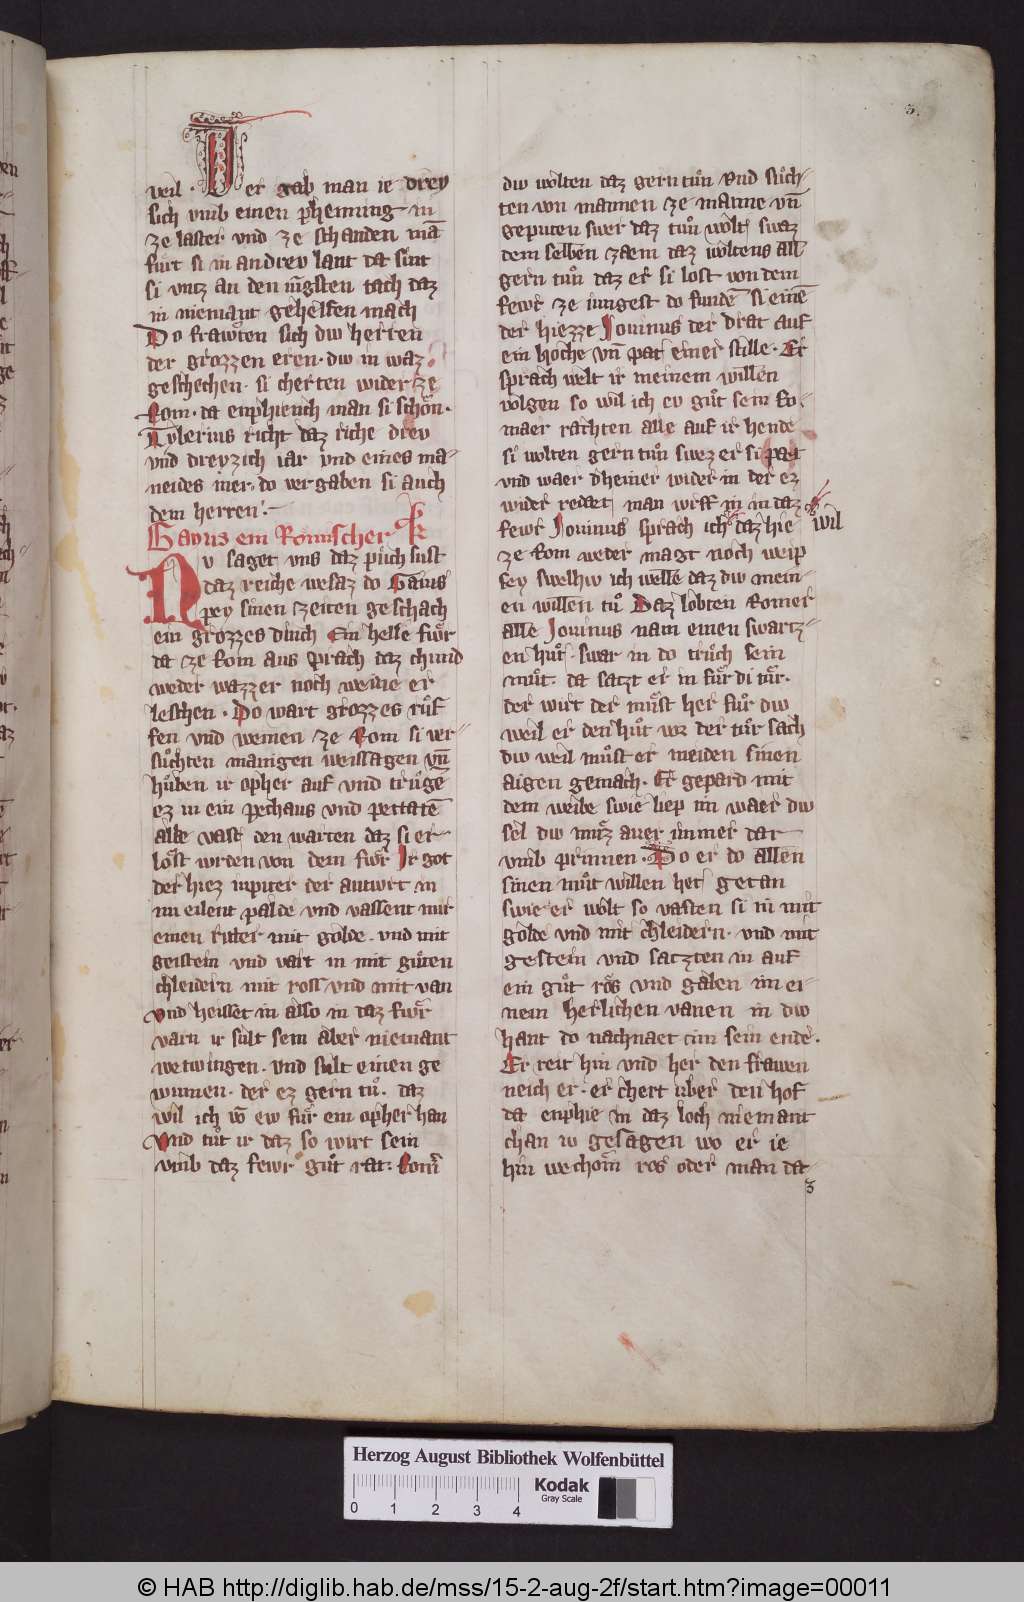 3.
veil · J er gab man ie drey
sich vmb einen phenning in
ze laster vnd ze schanden mā
fuͤrt si in andrev lant da sint
si vntz an den iūgsten tach daz
in niemant gehelfen mach
Do frawͦten sich diw herren
der grozzen eren · diw in waz
geschechen · si cherten wider ze
Rom · da enphiench man si schoͤn ·
Tyberius richt daz riche drev
vnd dreyzich iar vnd eines ma-
neides mer · do vergaben si auch
dem herren ·
Gayus ein Romischer k
Nv saget vns daz puͤch sust
daz reiche besaz do Gaius
pey sinen zeiten geschach
ein grozzes dinch Ein helle fuͤr
da ze Rom aus prach daz chund
weder wazzer noch weine er
leschen · Do wart grozzes ruͤf
fen vnd weinen ze Rom si ver-
suͦchten manigen weissagen vn̄
huͦben ir opher auf vnd truͦgē
ez in ein pechaus vnd pettatē
alle vast den warten daz si er
lost wrden von dem fiwr Ir got
der hiez iupiter der antwrt in
nu eilent palde vnd vassent mir
einen ritter mit golde · vnd mit
gestein vnd vart in mit guͦten
chleidern mit ross vnd mit van
vnd heisset in also in daz fiwr
varn ir sult sein aber niemant
wetwingen · vnd sult einen ge
winnen · der ez gern tuͦ · daz
wil ich vō ew fuͤr ein opher han
vnd tuͦt ir daz so wirt sein
vmb daz fewr guͦt rat : Romr̄
diw wolten daz gern tuͦn vnd suͦch-
ten von mannen ze manne vn̄
geputen swer daz tuͦn wolt swaz
dem selben zaem daz woltens all
gern tuͦn daz er si lost von dem
fewr ze iungest do fundē si einē
der hiezzt Jouinus der drat auf
ein hoche vn̄ pat einer stille · Er
sprach welt ir meinem willen
volgen so wil ich ev guͦt sein Ro-
maer rachten alle auf ir hende
si wolten gern tuͦn swez er si pat
vnd waer dheiner wider in der ez
wider redaet man wrff in in daz
fewr Jouinus sprach ich daz hie wil
ze Rom weder magt noch weip
sey swelhiw ich welle daz diw mein-
en willen tuͦ Daz lobten Romer
alle Jouinus nam einen swartz-
en huͦt · swar in do truͦch sein
muͦt · da satzt er in fuͤr di tuͤr ·
der wirt der muͤst her fuͤr diw
weil er den huͦt vor der tuͤr sach
diw weil muͦst er meiden sinen
aigen gemach · Er gepard mit
dem weibe swie liep im waer diw
sel diw muz aver immer dar
vmb prinnen · Do er do allen
sinen muͦt willen het getan
swie er wolt so vasten si in mit
golde vnd mit chleidern · vnd mit
gestein vnd satzten in auf
ein guͦt ros vnd gaben im ei-
nem herlichen vanen in diw
hant do nachnaet im sein ende ·
Er reit hin vnd her den frawen
neich er · er chert uber den hof
da enphie in daz loch niemant
chan iv gesagen wo er ie
hin wechom ros oder man daz
3
Herzog August Bibliothek Wolfenbüttel
0 1 2 3 4
Kodak
Gray Scale
© HAB http://diglib.hab.de/mss/15-2-aug-2f/start.htm?image=00011